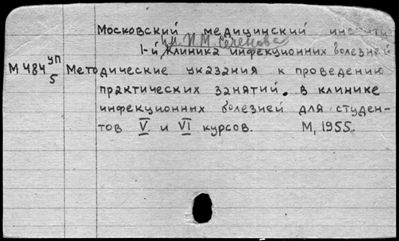 Московский медицинский инсти
им. И.М. Сеченова
1-й клиника инфекционных болезней
М484 уп Методические указания к проведению
5 практических занятий. в клинике
инфекционных болезней для студен-
тов V и VI курсов. М, 1955.